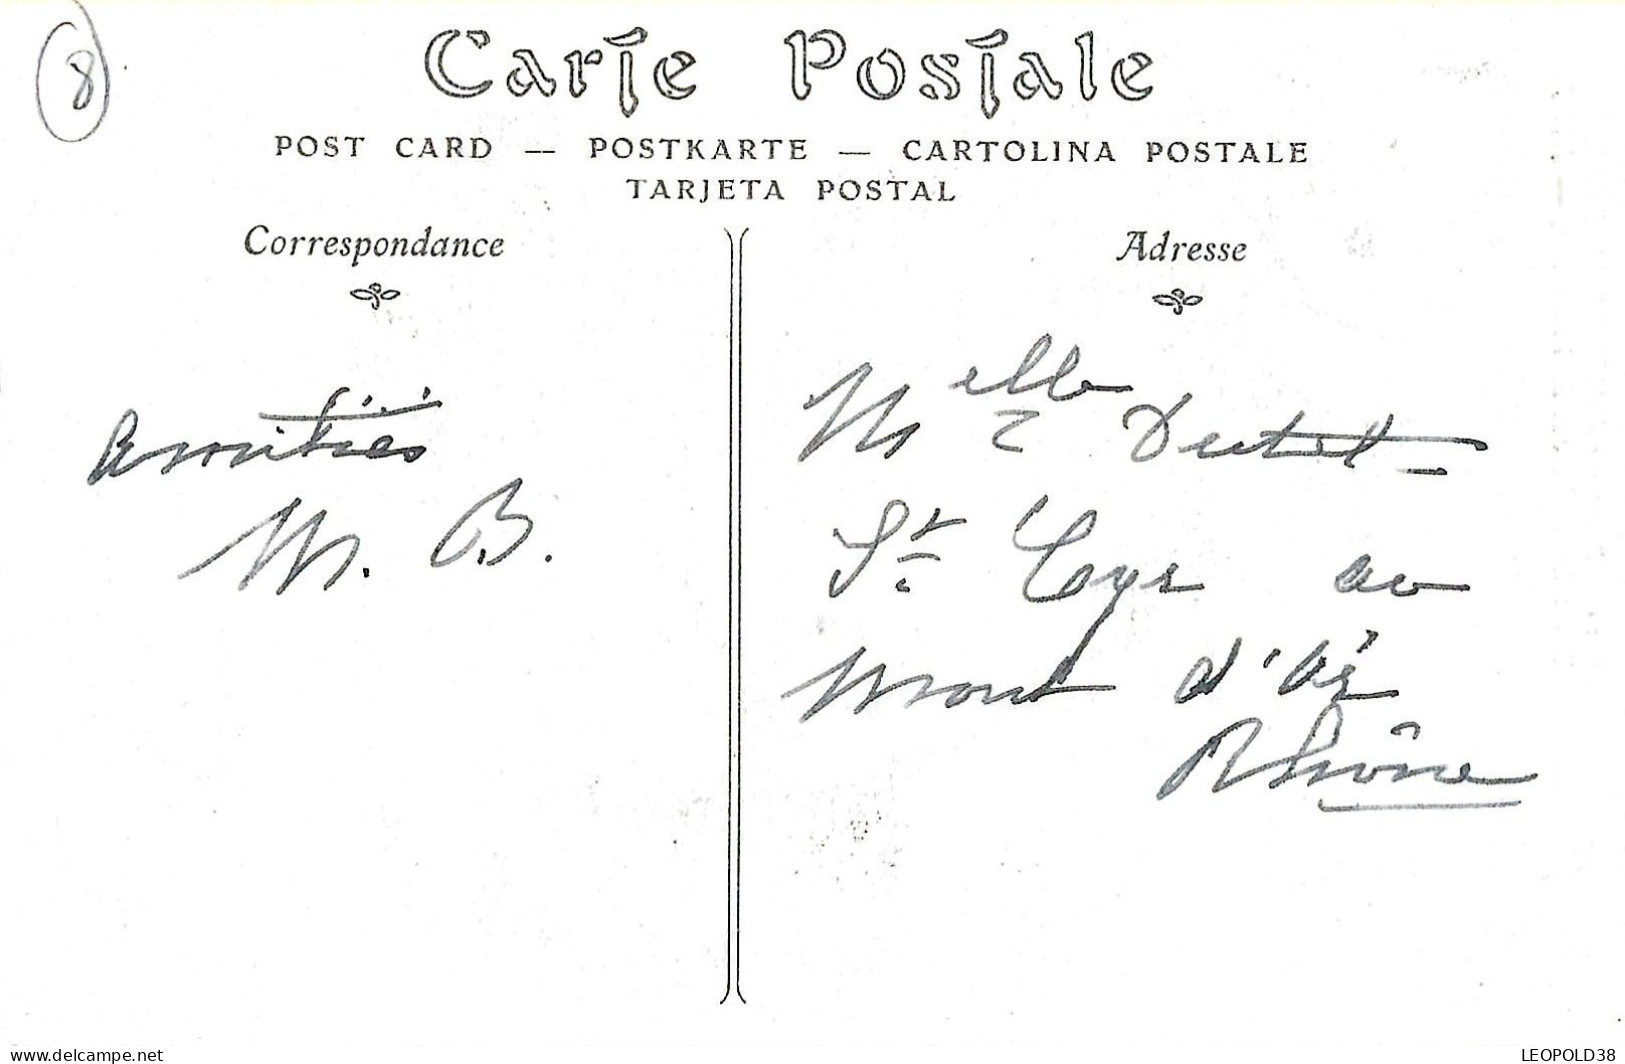 8
Carte Postale
POST CARD — POSTKARTE — CARTOLINA POSTALE
TARJETA POSTAL
Correspondance
Adresse
Amitiés
M. B.
Melle
St Cyr au
Mont d'Or
Rhône
www.delcampe.net
LEOPOLD38